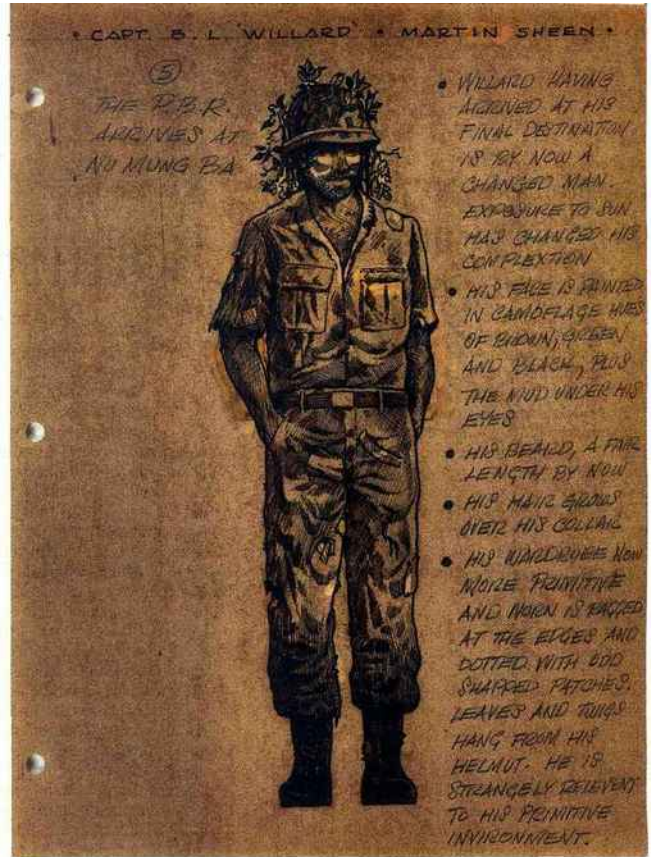 • CAPT. B. L. WILLARD • MARTIN SHEEN •
⑤
THE P.B.R.
ARRIVES AT
NU MUNG BA
• WILLARD HAVING
ARRIVED AT HIS
FINAL DESTINATION
IS BY NOW A
CHANGED MAN.
EXPOSURE TO SUN
HAS CHANGED HIS
COMPLEXTION
• HIS FACE IS PAINTED
IN CAMOFLAGE HUES
OF BROWN, GREEN
AND BLACK, PLUS
THE MUD UNDER HIS
EYES
• HIS BEARD, A FAIR
LENGTH BY NOW
• HIS HAIR GROWS
OVER HIS COLLAR
• HIS WARDROBE NOW
MORE PRIMITIVE
AND WORN IS RAGGED
AT THE EDGES AND
DOTTED WITH ODD
SHAPPED PATCHES.
LEAVES AND TWIGS
HANG FROM HIS
HELMUT. HE IS
STRANGELY RELEVENT
TO HIS PRIMITIVE
INVIRONMENT.